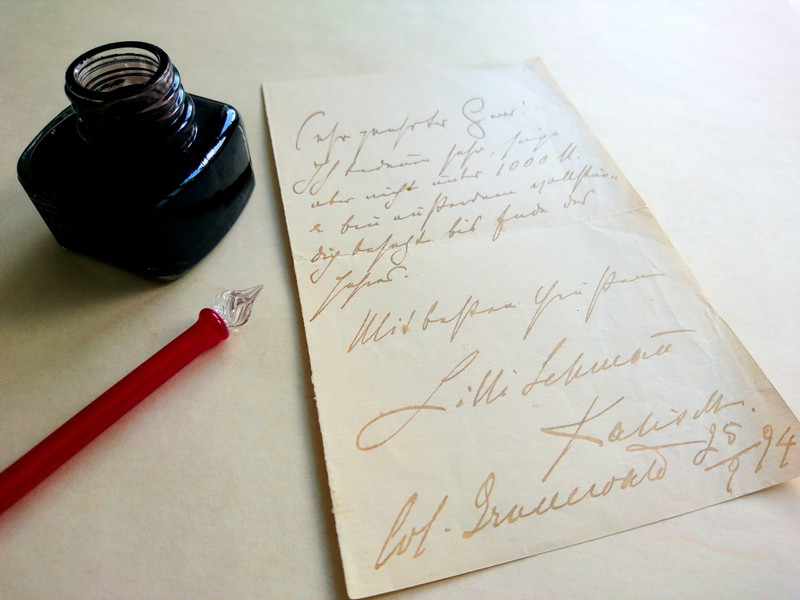 Sehr geehrter Herr!
Ich bedaure sehr, singe
aber nicht unter 1000 M.
& bin außerdem vollstän-
dig besetzt bis Ende des
Jahres.
Mit besten Grüßen
Lilli Lehmann
Kalisch.
Col. Grunewald 25/9 94